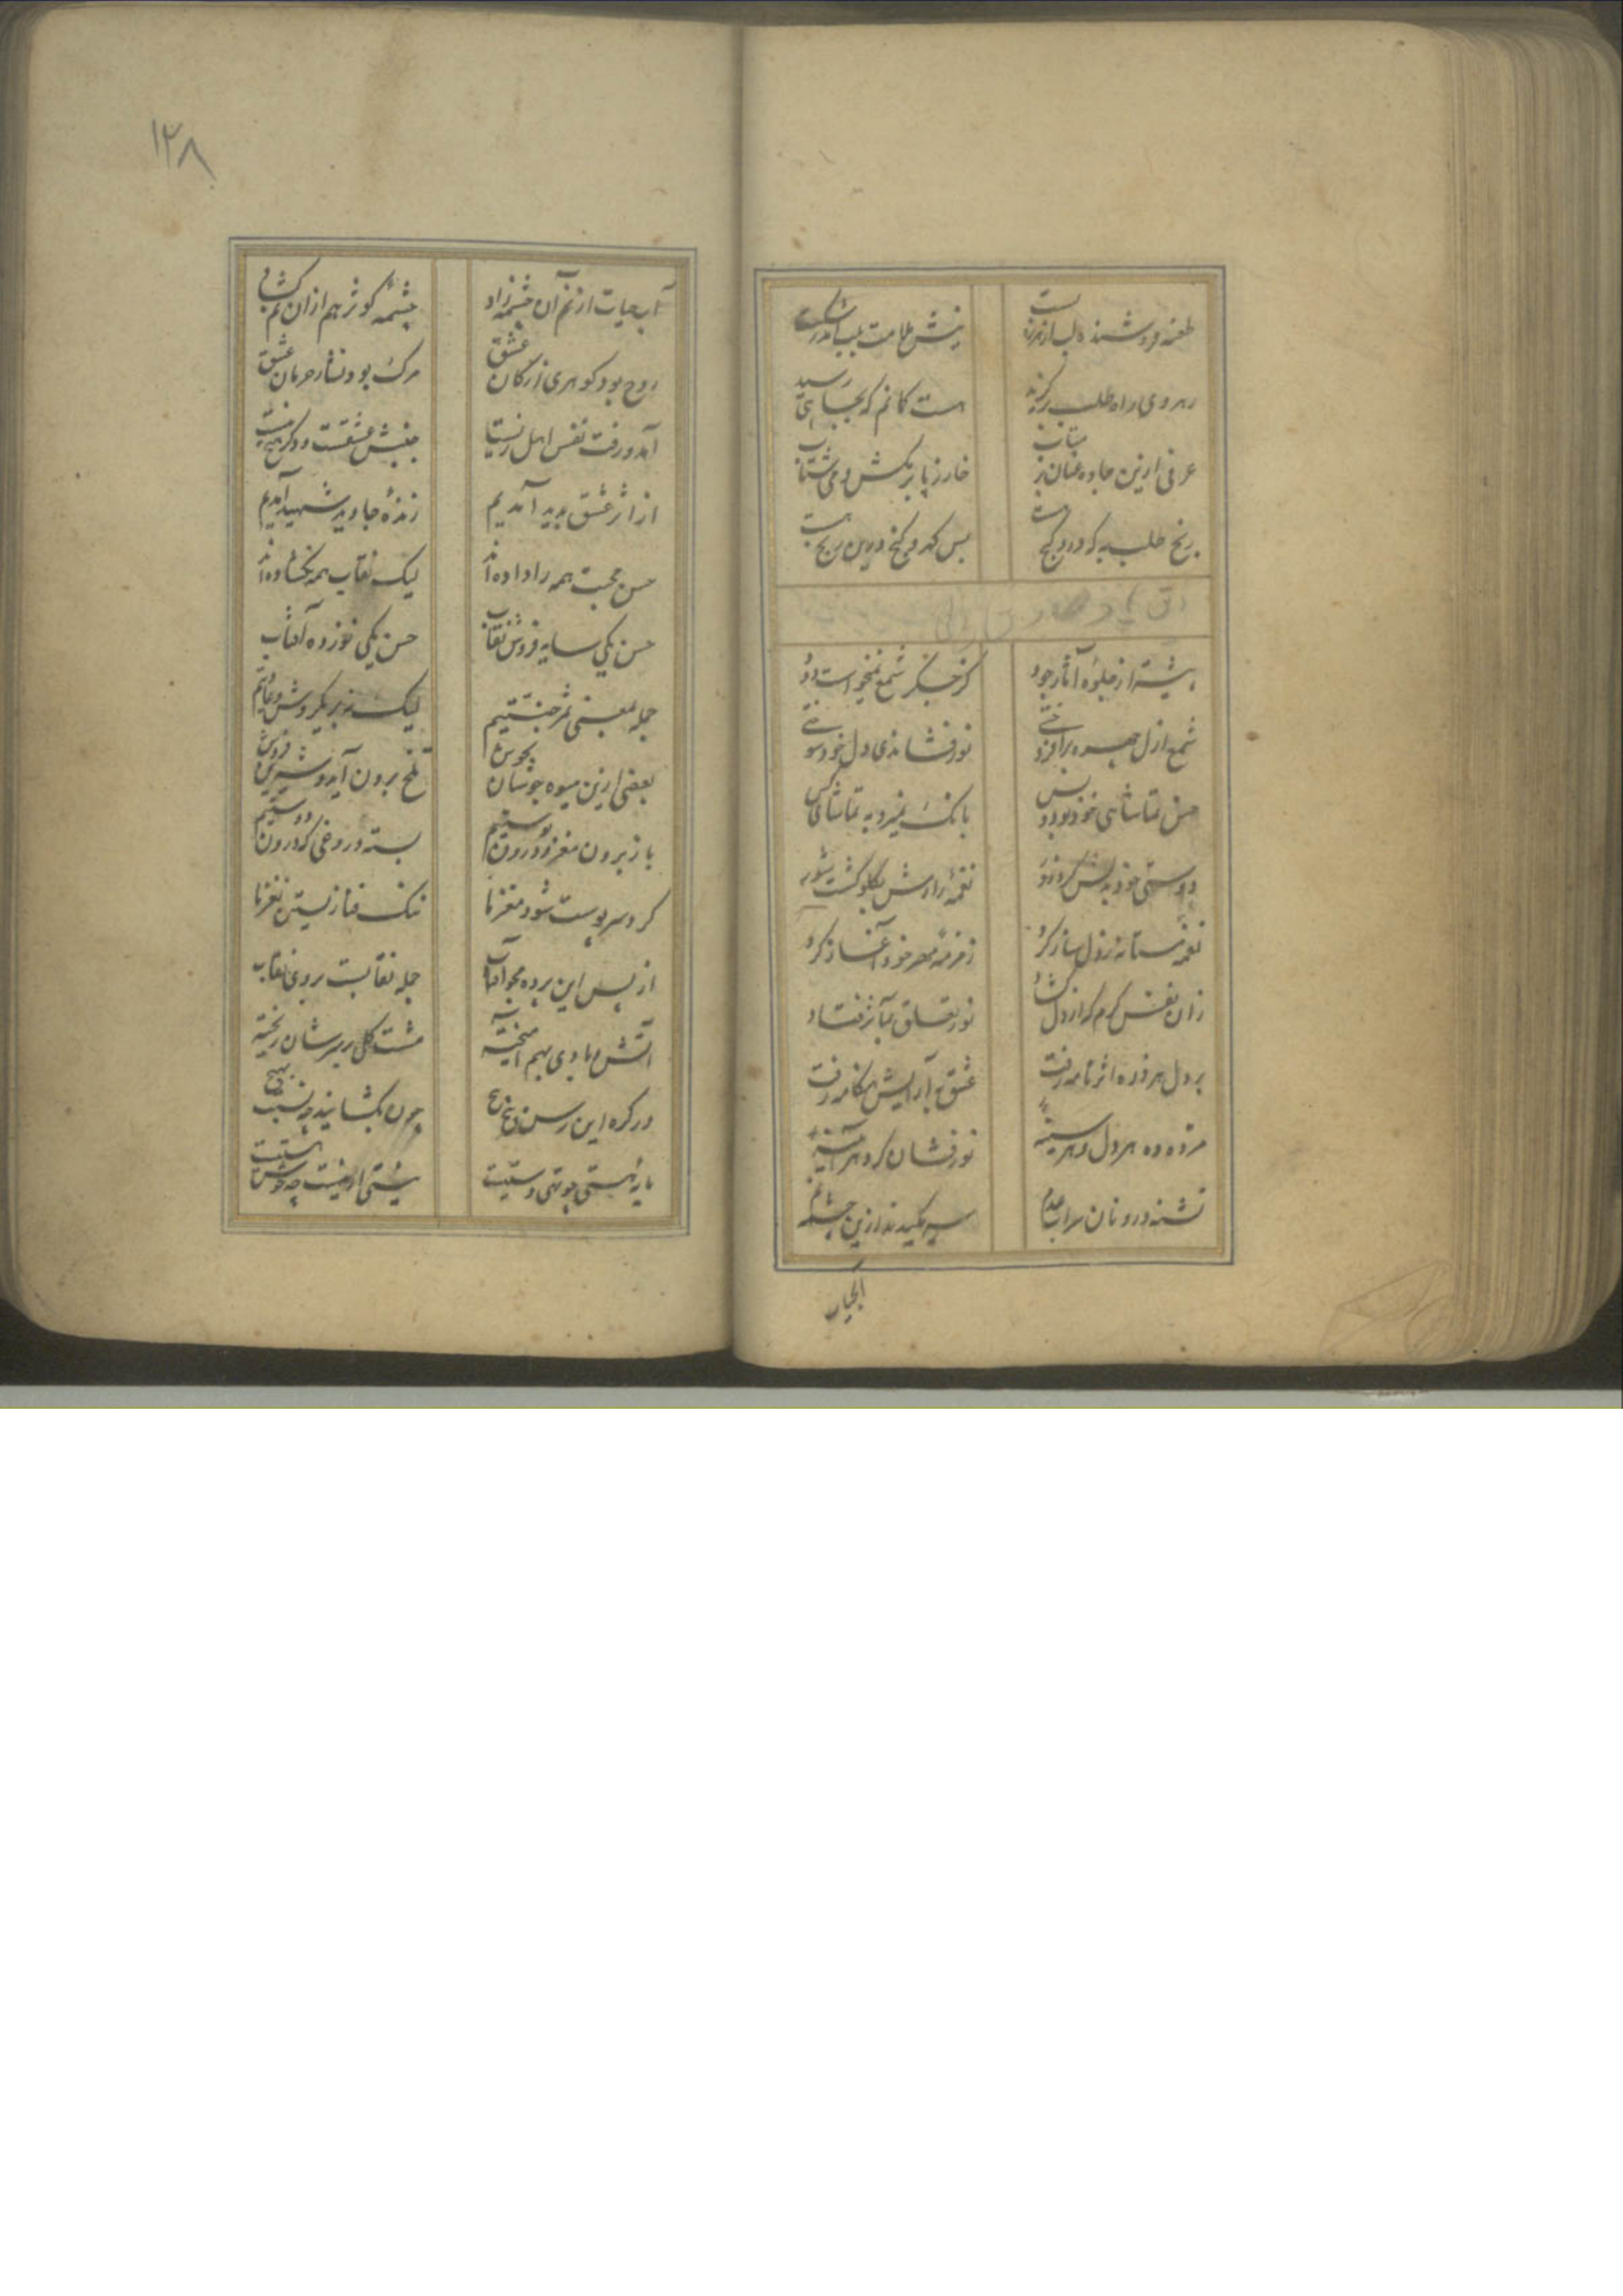 طعنه فروشنده لب از هرزه بست
نیش ملامت بلب اندر شکست
رهروی راه طلب برگزید
هست گمانم که بجایی رسید
عرفی ازین جاده عنان بر متاب
خار ز پا بر مکش و می شتاب
رنج طلب به که درو گنج هست
بس که درو گنج و درین رنج هست
پیشتر از جلوه آثار جود
کز جگر شمع نمیخواست دود
شمع ازل چهره برافروختی
نور فشاندی دل خود سوختی
حسن تماشائی خود بود و بس
بانگ نمیزد به تماشای کس
دوستی خود بدلش کرد زور
نغمه رازش بگلو گشت شور
نغمه مستانه ز دل ساز کرد
زمزمه مهر خود آغاز کرد
زان نفس گرم که از دل گشاد
نور تعلق بمآثر فتاد
بر دل هر ذره اثر نامه رفت
عشق بآرایش هنگامه رفت
مژده ده هر دل و هر سینه
نور فشان کرد هر آئینه
تشنه درونان سراب عدم
سیر مکیدند ازین چشمه نم
آبحیات
۱۲۸
آب حیات از نم آن چشمه زاد
چشمه کوثر هم از ان نم گشاد
روح بود گوهری از کان عشق
مرگ بود نثار حرمان عشق
آمد و رفت نفس اهل زیست
جنبش عشقست و دگر هیچ نیست
از اثر عشق پدید آمدیم
زنده جاوید شهید آمدیم
حسن محبت همه را داده اند
لیک نقاب همه نگشاده اند
حسن یکی سایه فروش نقاب
حسن یکی نور ده آفتاب
جمله بمعنی ثمر جنتیم
لیک نه بر یکروش و عادتیم
بعضی ازین میوه جوشان بجوش
تلخ برون آید و شیرین فروش
باز برون مغز و درون پوستیم
بسته دروغی که درون دوستیم
گر دو سر پوست شود مغز ما
ننگ فنا زیستن نغز ما
از پس این پرده مجو آفتاب
جمله نقابست بروی نقاب
آتش و بادی بهم آمیخته
مشت گلی بر سرشان ریخته
در گره این رسن پیچ پیچ
چون بگشایند چه نسبت بهیچ
مایه هستی چو تهی دستیست
نیستی ار نیست چه خوش هستیست